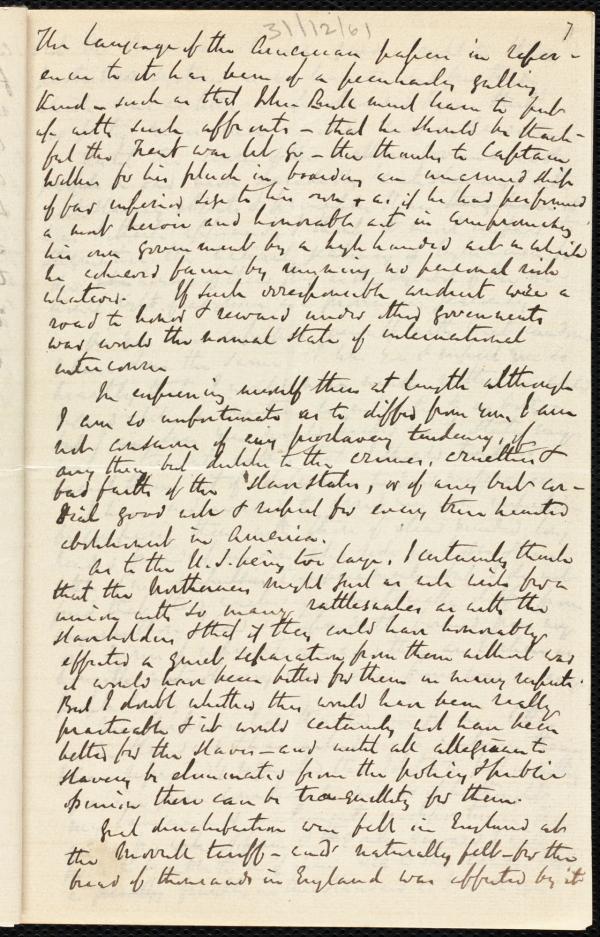 31/12/61
7
The language of the American papers in refer-
ence to it has been of a peculiarly galling
kind - such as that John Bull must learn to put
up with such affronts - that he should be thank-
ful the Trent was let go - the thanks to Captain
Wilkes for his pluck in boarding an unarmed ship
of far inferior size to his own & as if he had performed
a most heroic and honorable act in compromising
his own government by a high handed act in which
he achieved fame by running no personal risk
whatever. If such irresponsible conduct were a
road to honor & reward under other governments
war would be the normal state of international
intercourse
In expressing myself thus at length although
I am so unfortunate as to differ from you, I am
not conscious of any proslavery tendency, of
any thing but dislike to the crimes, cruelties &
bad faith of the Slave States, or of any but cor-
dial good will & respect for every true hearted
abolitionist in America.
As to the U.S. being too large, I certainly think
that the Northerners might just as well wish for a
union with so many rattlesnakes as with the
slaveholders & that if they could have honorably
effected a quiet separation from them without war
it would have been better for them in many respects.
But I doubt whether this would have been really
practicable & it would certainly not have been
better for the slaves - and until all allegiance to
slavery be eliminated from the policy & public
opinion there can be tranquillity for them.
Great dissatisfaction was felt in England at
the Morrill tariff - and naturally felt - for the
bread of thousands in England was affected by it